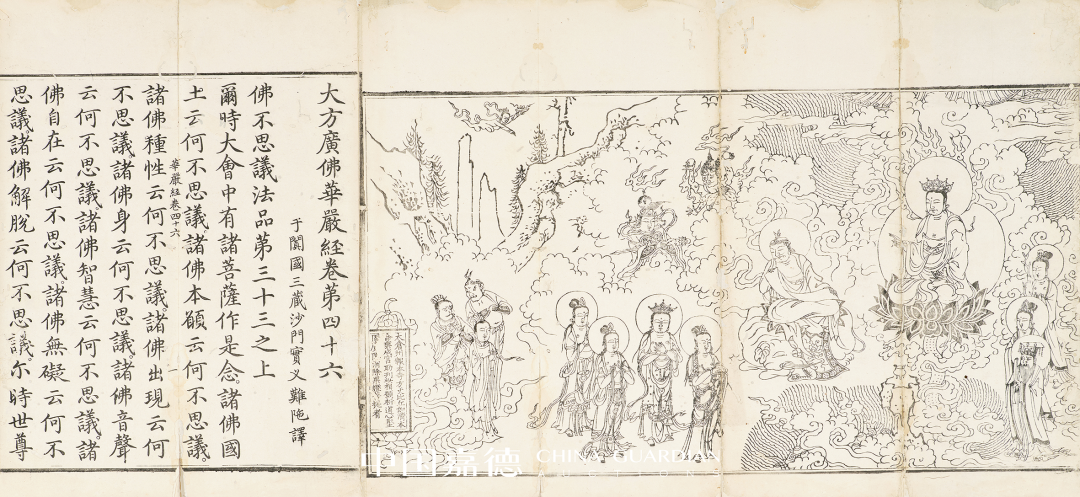 大方廣佛華嚴經卷第四十六
于闐國三藏沙門實叉難陁譯
佛不思議法品第三十三之上
爾時大會中有諸菩薩作是念諸佛國
土云何不思議諸佛本願云何不思議
華嚴經卷四十六
諸佛種性云何不思議諸佛出現云何
不思議諸佛身云何不思議諸佛音聲
云何不思議諸佛智慧云何不思議諸
佛自在云何不思議諸佛無礙云何不
思議諸佛解脫云何不思議尒時世尊
中国嘉德 CHINA GUARDIAN